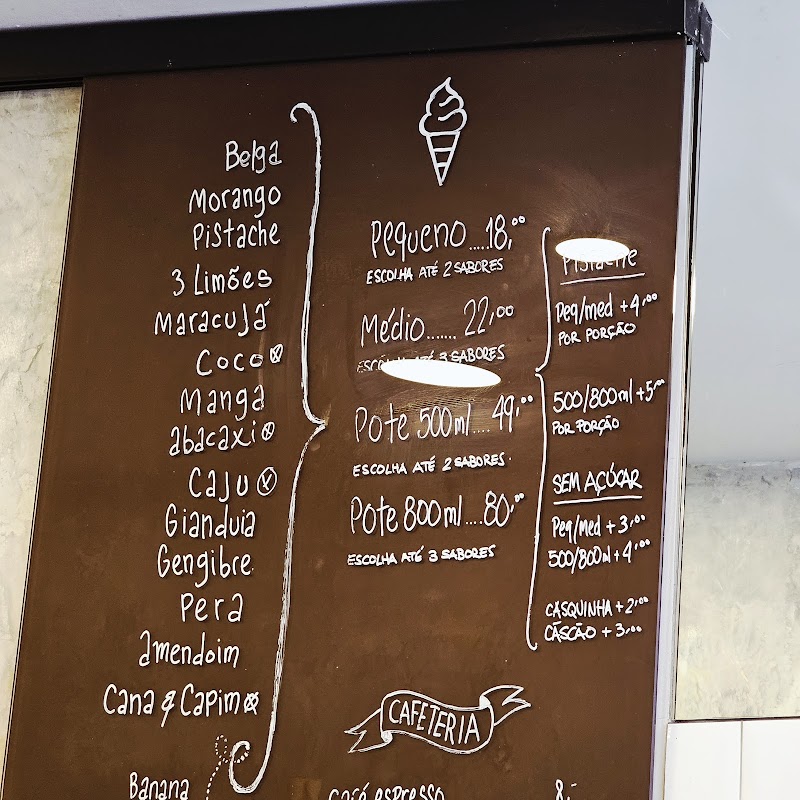 Belga
Morango
Pistache
3 Limões
Maracujá
Coco
Manga
abacaxi
Caju Ⓥ
Gianduia
Gengibre
Pera
amendoim
Cana & Capim
Banana
Pequeno.....18,00
ESCOLHA ATÉ 2 SABORES
Médio....... 22,00
ESCOLHA ATÉ 3 SABORES
Pote 500ml....49,00
ESCOLHA ATÉ 2 SABORES.
Pote 800ml....80,00
ESCOLHA ATÉ 3 SABORES
Pistache
Peq/med +4,00
POR PORÇÃO
500/800ml +5,00
POR PORÇÃO
SEM AÇÚCAR
Peq/med + 3,00
500/800ml + 4,00
CASQUINHA +2,00
CASCÃO + 3,00
CAFETERIA
Café espresso 8,-